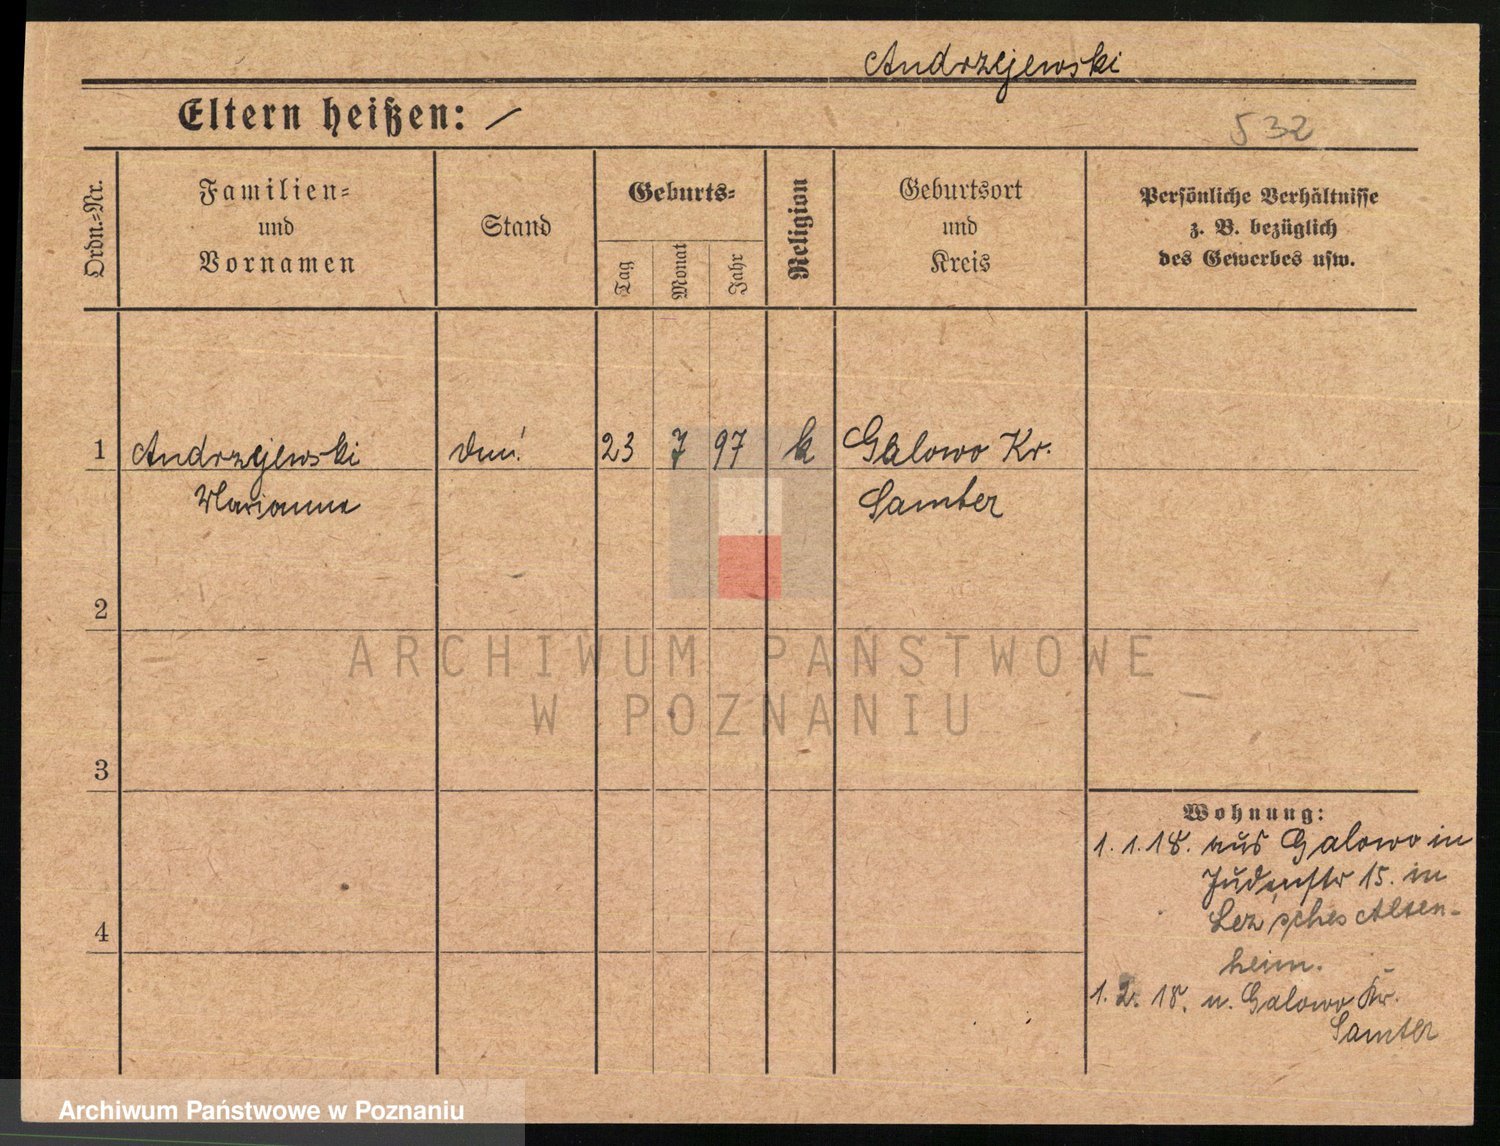 Andrzejewski
Eltern heißen: /
532
Ordn.=Nr.
Familien=
und
Vornamen
Stand
Geburts=
Tag
Monat
Jahr
Religion
Geburtsort
und
Kreis
Persönliche Verhältnisse
z. B. bezüglich
des Gewerbes usw.
1 Andrzejewski 23 7 97 k Galowo Kr.
Marianna Samter
2
3
4
Wohnung:
1. 1. 18. aus Galowo in
Judenstr 15. in
heim.
1. 2. 18. n. Galowo Kr.
Samter
ARCHIWUM PAŃSTWOWE
W POZNANIU
Archiwum Państwowe w Poznaniu